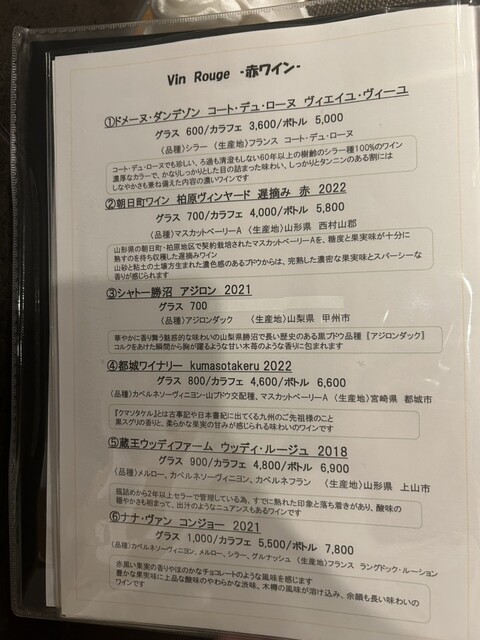 Vin Rouge -赤ワイン-
①ドメーヌ・ダンデゾン コート・デュ・ローヌ ヴィエイユ・ヴィーユ
グラス 600/カラフェ 3,600/ボトル 5,000
(品種)シラー (生産地)フランス コート・デュ・ローヌ
コート・デュ・ローヌでも珍しい、ろ過も清澄もしない60年以上の樹齢のシラー種100%のワイン
濃厚なカラーで、かなりしっかりとした目の詰まった味わい、しっかりとしたタンニンのある割には
しなやかさも兼ね備えた内容の濃いワインです
②朝日町ワイン 柏原ヴィンヤード 遅摘み 赤 2022
グラス 700/カラフェ 4,000/ボトル 5,800
(品種)マスカットベーリーA (生産地)山形県 西村山郡
山形県の朝日町・柏原地区で契約栽培されたマスカットベーリーAを、糖度と果実味が十分に
熟すのを待ち収穫した遅摘みワイン
山砂と粘土の土壌方生まれた濃色感のあるブドウからは、完熟した濃密な果実味とスパーシーな
香りが感じられます
③シャトー勝沼 アジロン 2021
グラス 700
(品種)アジロンダック (生産地)山梨県 甲州市
華やかに香り舞う魅惑的な味わいの山梨県勝沼で長い歴史のある黒ブドウ品種 〖アジロンダック〗
コルクをあけた瞬間から胸が躍るような甘い木苺のような香りに包まれます
④都城ワイナリー kumasotakeru 2022
グラス 800/カラフェ 4,600/ボトル 6,600
(品種)カベルネソーヴィニヨン・山ブドウ交配種、マスカットベーリーA (生産地)宮崎県 都城市
『クマソタケル』とは古事記や日本書紀に出てくる九州のご先祖様のこと
黒スグリの香りと、柔らかな果実の甘みが感じられる味わいのワインです
⑤蔵王ウッディファーム ウッディ・ルージュ 2018
グラス 900/カラフェ 4,800/ボトル 6,900
(品種)メルロー、カベルネソーヴィニヨン、カベルネフラン (生産地)山形県 上山市
瓶詰めから2年以上セラーで管理している為、すでに熟れた印象と落ち着きがあり、酸味の
穏やかさも相まって、出汁のようなニュアンスもあるワインです
⑥ナナ・ヴァン コンジョー 2021
グラス 1,000/カラフェ 5,500/ボトル 7,800
(品種)カベルネソーヴィニヨン、メルロー、シラー、グルナッシュ (生産地)フランス ラングドック・ルーション
赤黒い果実の香りやほのかなチョコレートのような風味を感じます
豊かな果実味に上品な酸味のやわらかな渋味、木樽の風味が溶け込み、余韻も長い味わいの
ワインです